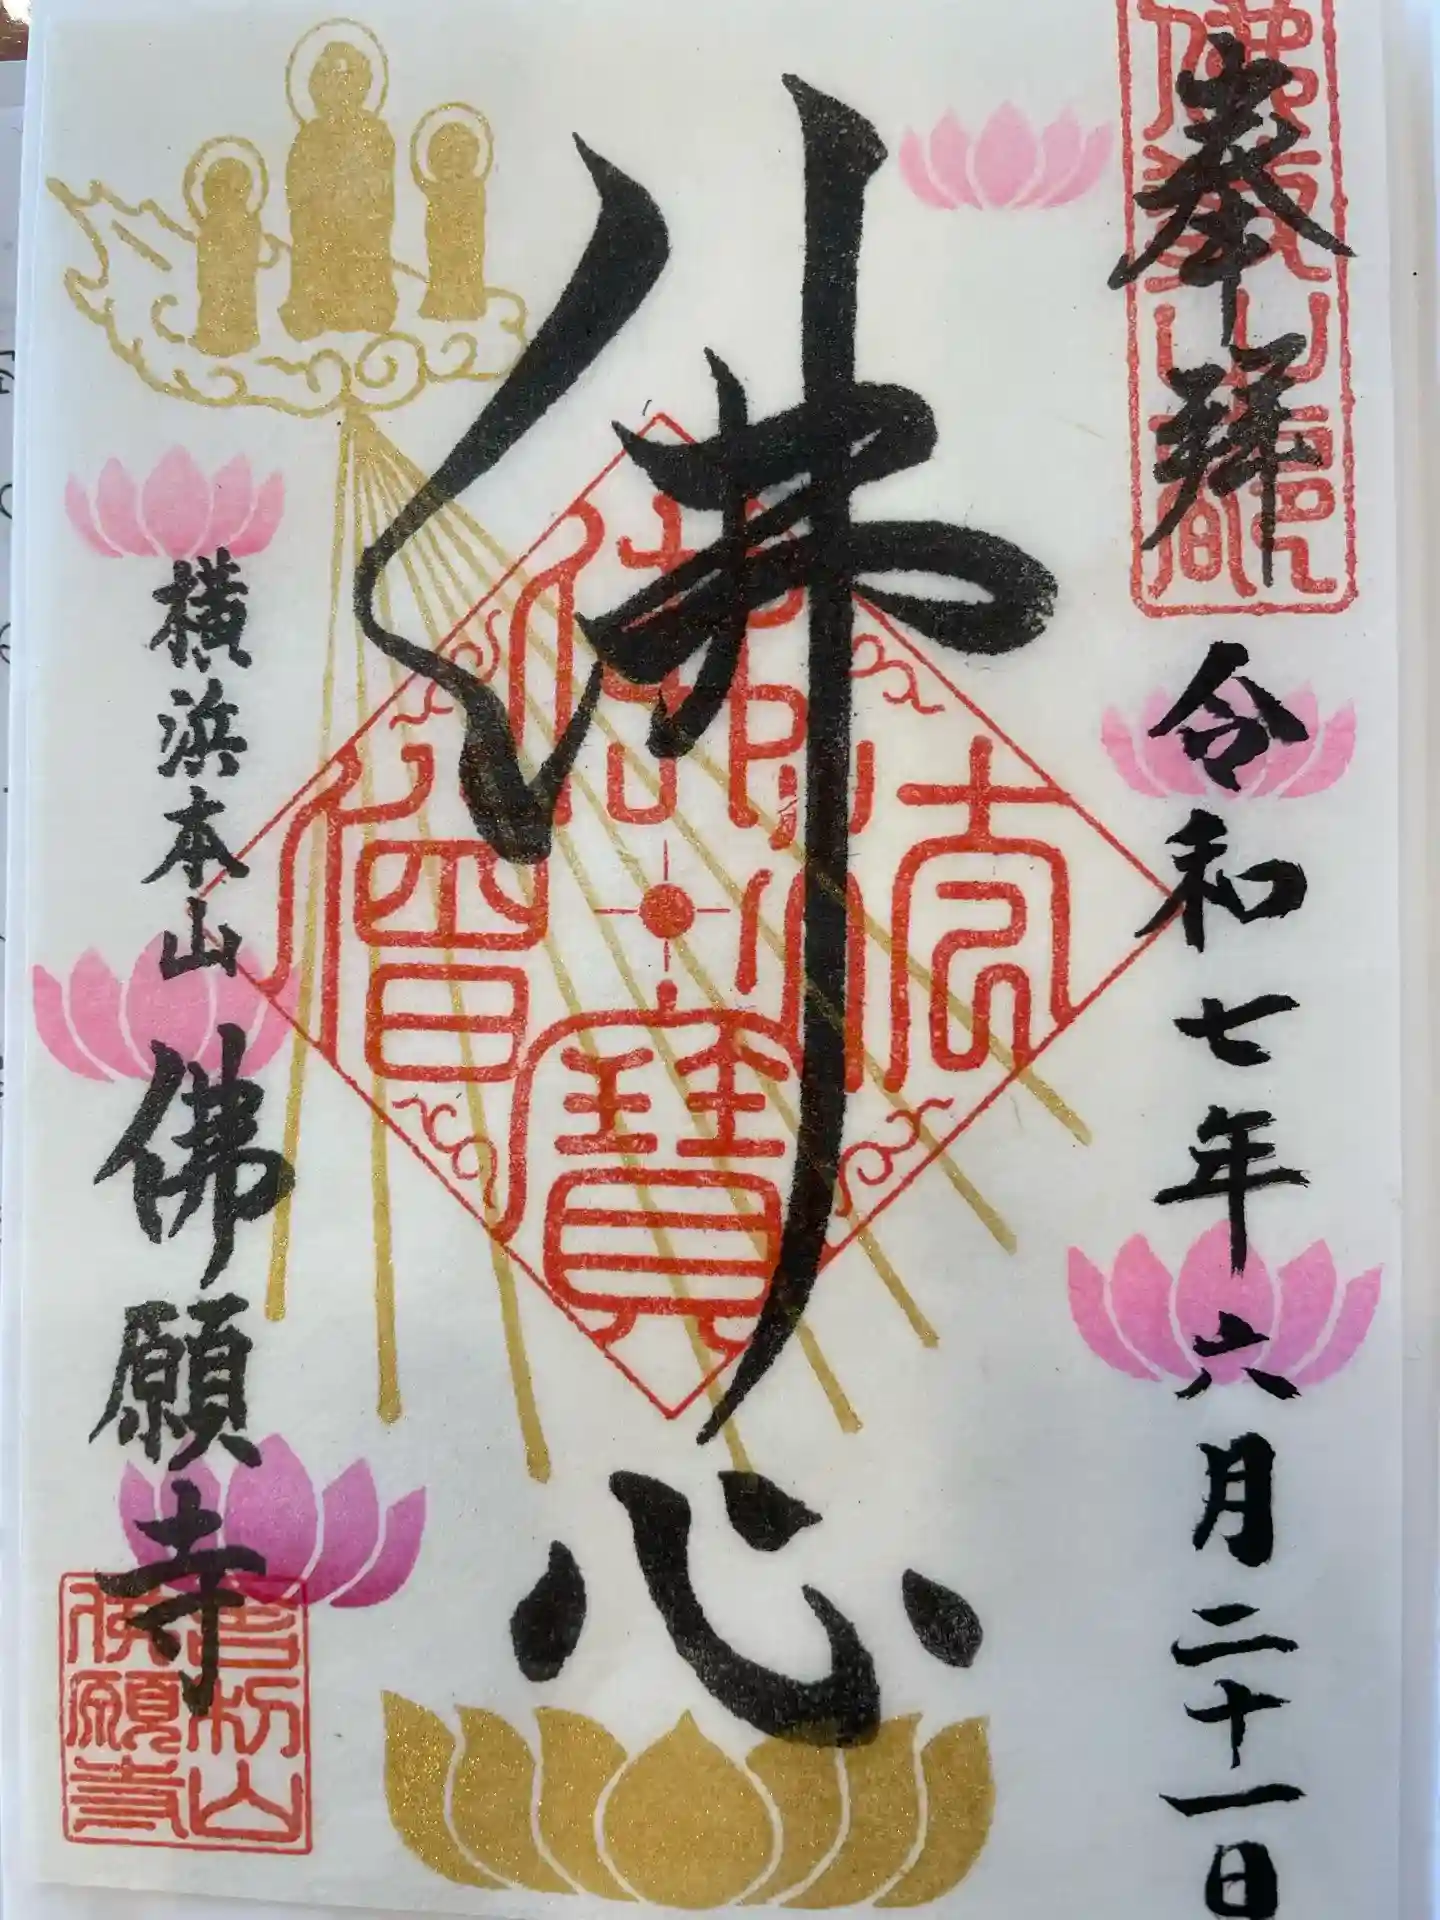 奉拜
令和七年六月二十一日
佛心
佛法僧寶
横浜本山 佛願寺
佛願寺